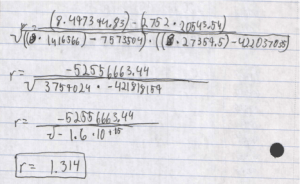 r = (8.497344.83) - (2,752 · 20543.54)
√((8 · 1416366) - 7573504) · ((8 · 27354.5) - 422037035)
r = -52556663.44
√3754024 · -421818154
r = -52556663.44
√-1.6 · 10+15
r = 1.314